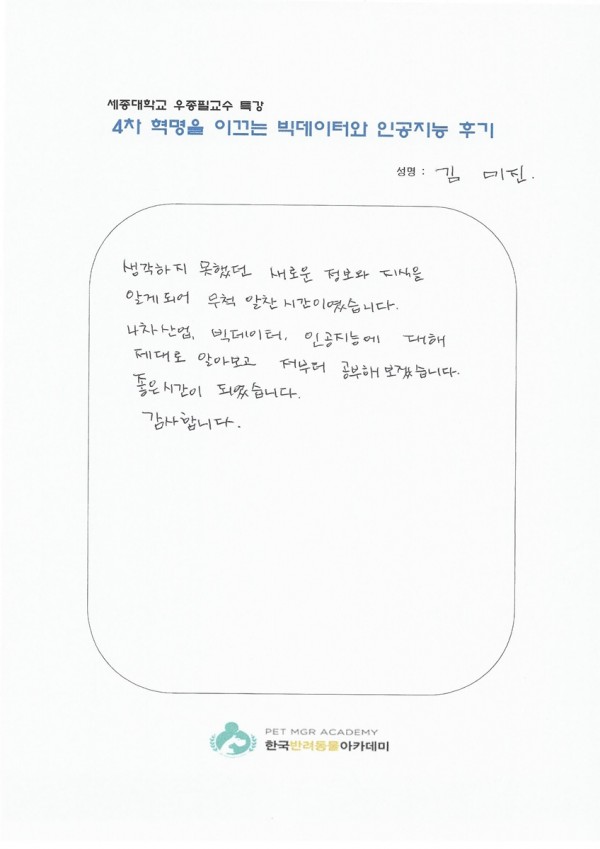 세종대학교 우종필교수 특강
4차 혁명을 이끄는 빅데이터와 인공지능 후기
성명 : 김 미진.
생각하지 못했던 새로운 정보와 지식을
알게되어 무척 알찬 시간이였습니다.
4차산업, 빅데이터, 인공지능에 대해
제대로 알아보고 저부터 공부해보겠습니다.
좋은시간이 되였습니다.
감사합니다.
PET MGR ACADEMY
한국반려동물아카데미